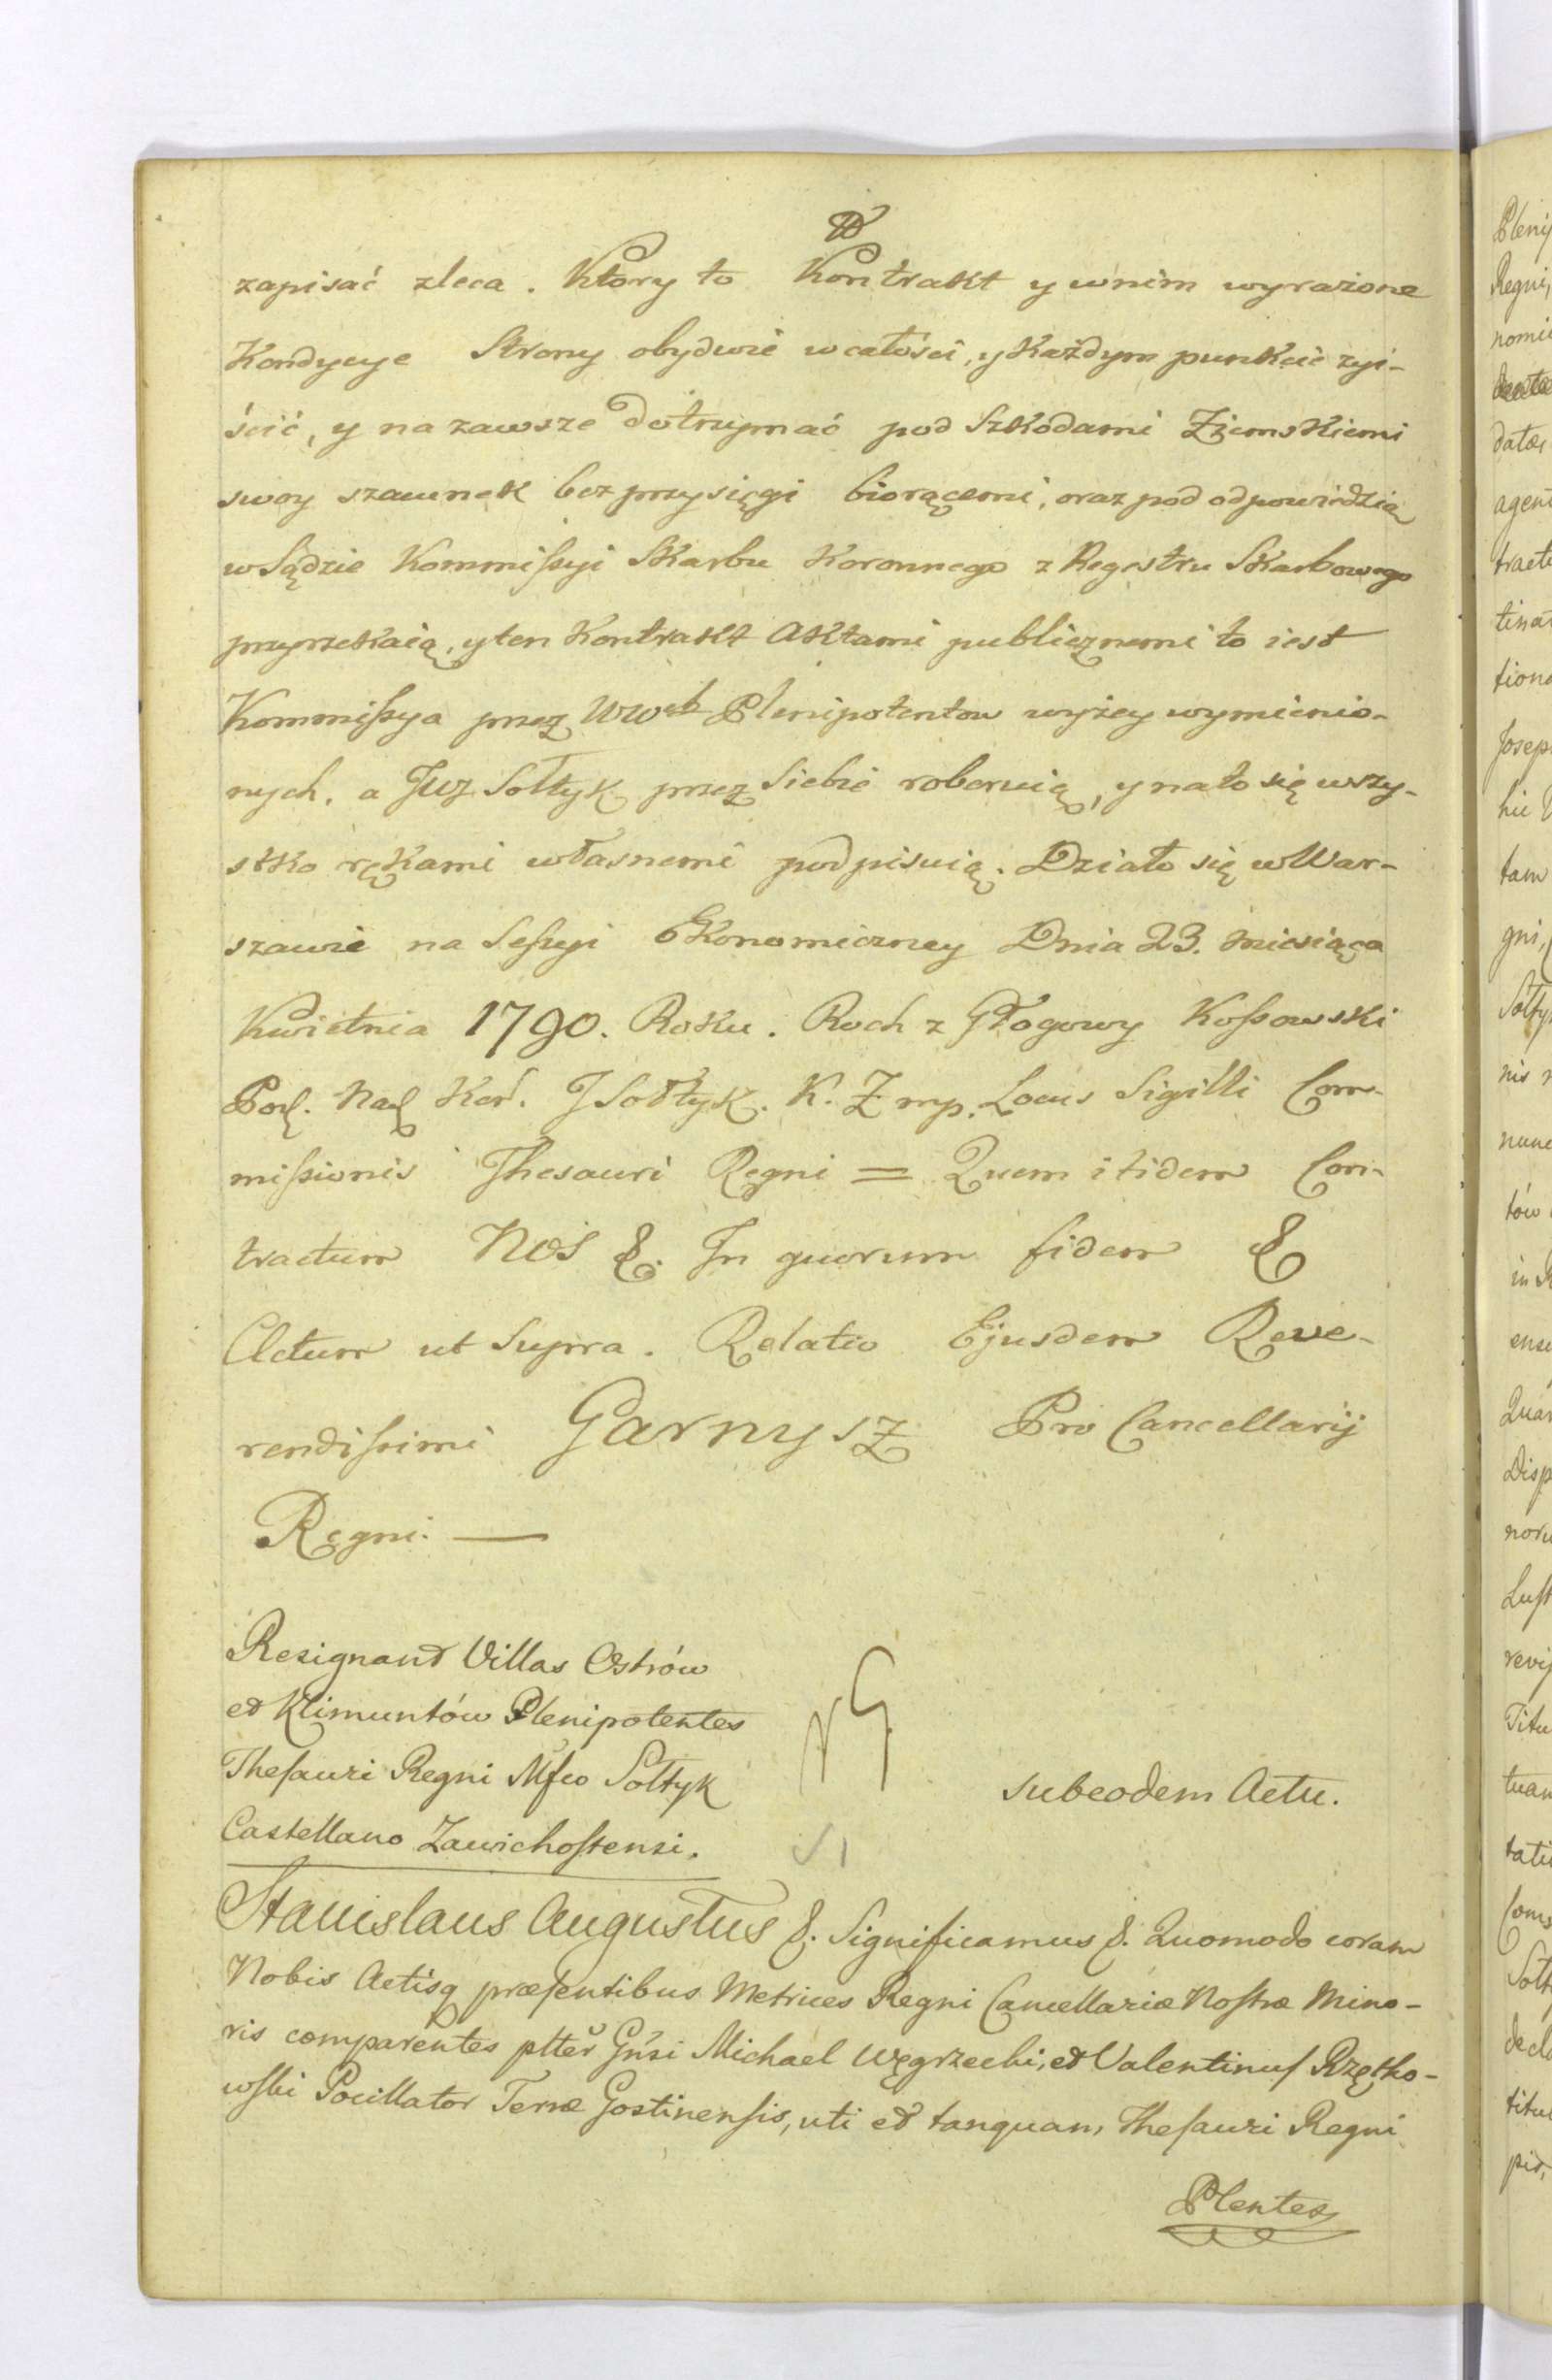 zapisać zleca. Ktory to Kontrakt y w nim wyrażone
Kondycye Strony obydwie w całości, y każdym punkcie zyi-
ścić, y na zawsze dotrzymać pod Szkodami Ziemskiemi
swoy szacunek bez przysięgi biorącemi, oraz pod odpowiedzią
w Sądzie Kommissyi Skarbu Koronnego z Regestru Skarbowego
przyrzekaią, y ten Kontrakt Aktami publicznemi to iest
Kommissya przez Wwch Plenipotentow wyżey wymienio-
nych, a Juz Sołtyk przez Siebie roboruią, y na to się wszy-
stko rękami własnemi podpisuią. Działo się w War-
szawie na Sessyi Ekonomiczney Dnia 23. miesiąca
Kwietnia 1790. Roku. Roch z Głogowy Kossowski
Pod. Nad Kor. J Sołtyk. K. Z. mp. Locus Sigilli Com-
missionis Thesauri Regni = Quem itidem Con-
tractum Nos &. In quorum fidem &
Actum ut Supra. Relatio Ejusdem Reve-
rendissimi Garnysz Pro Cancellarij
Regni. —
Resignant Villas Ostrów
et Klimuntów Plenipotentes
Thesauri Regni Mfco Sołtyk
Castellano Zawichostensi.
subeodem Actu.
Stanislaus Augustus &. Significamus &. Quomodo coram
Nobis Actisq præsentibus Metrices Regni Cancellariæ Nostræ Mino-
ris comparentes pltter Gnsi Michael Węgrzecki, et Valentinus Rzętko-
wski Pocillator Terræ Gostinensis, uti et tanquam Thesauri Regni
Plentes